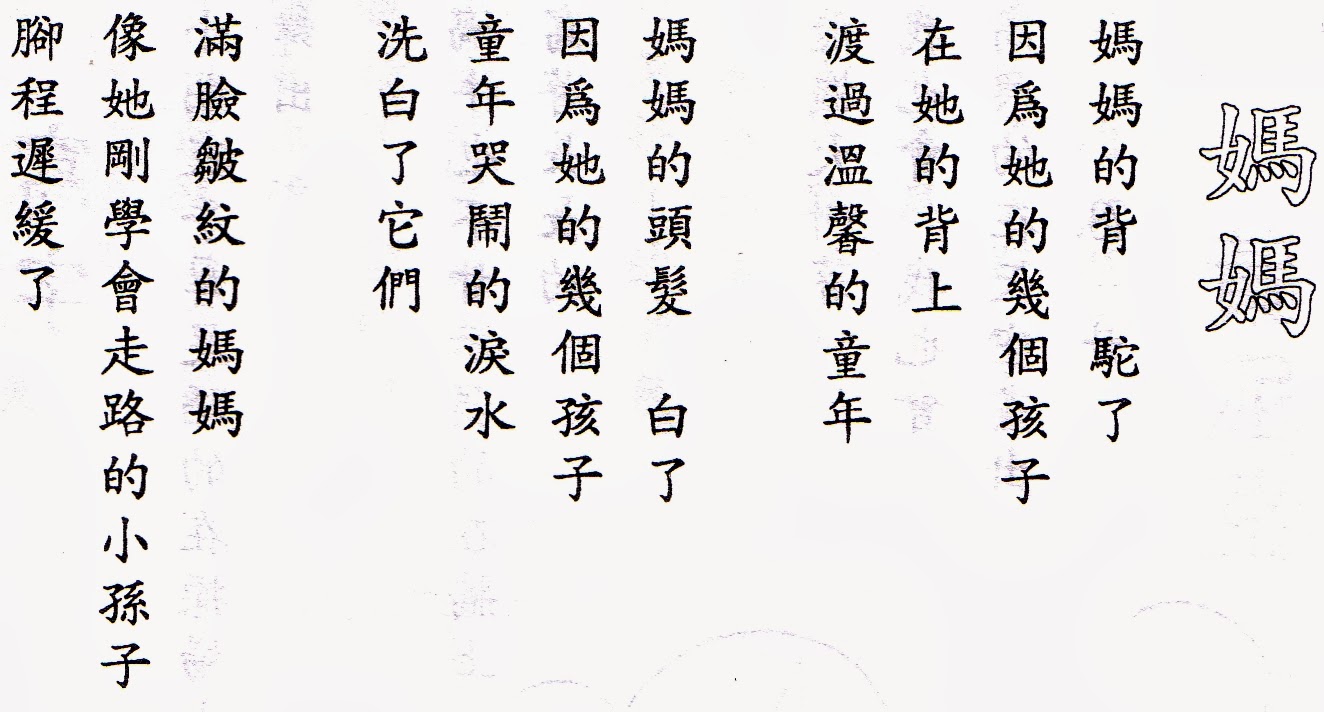 媽媽
媽媽的背　駝了
因爲她的幾個孩子
在她的背上
渡過溫馨的童年
媽媽的頭髮　白了
因爲她的幾個孩子
童年哭鬧的淚水
洗白了它們
滿臉皺紋的媽媽
像她剛學會走路的小孫子
腳程遲緩了